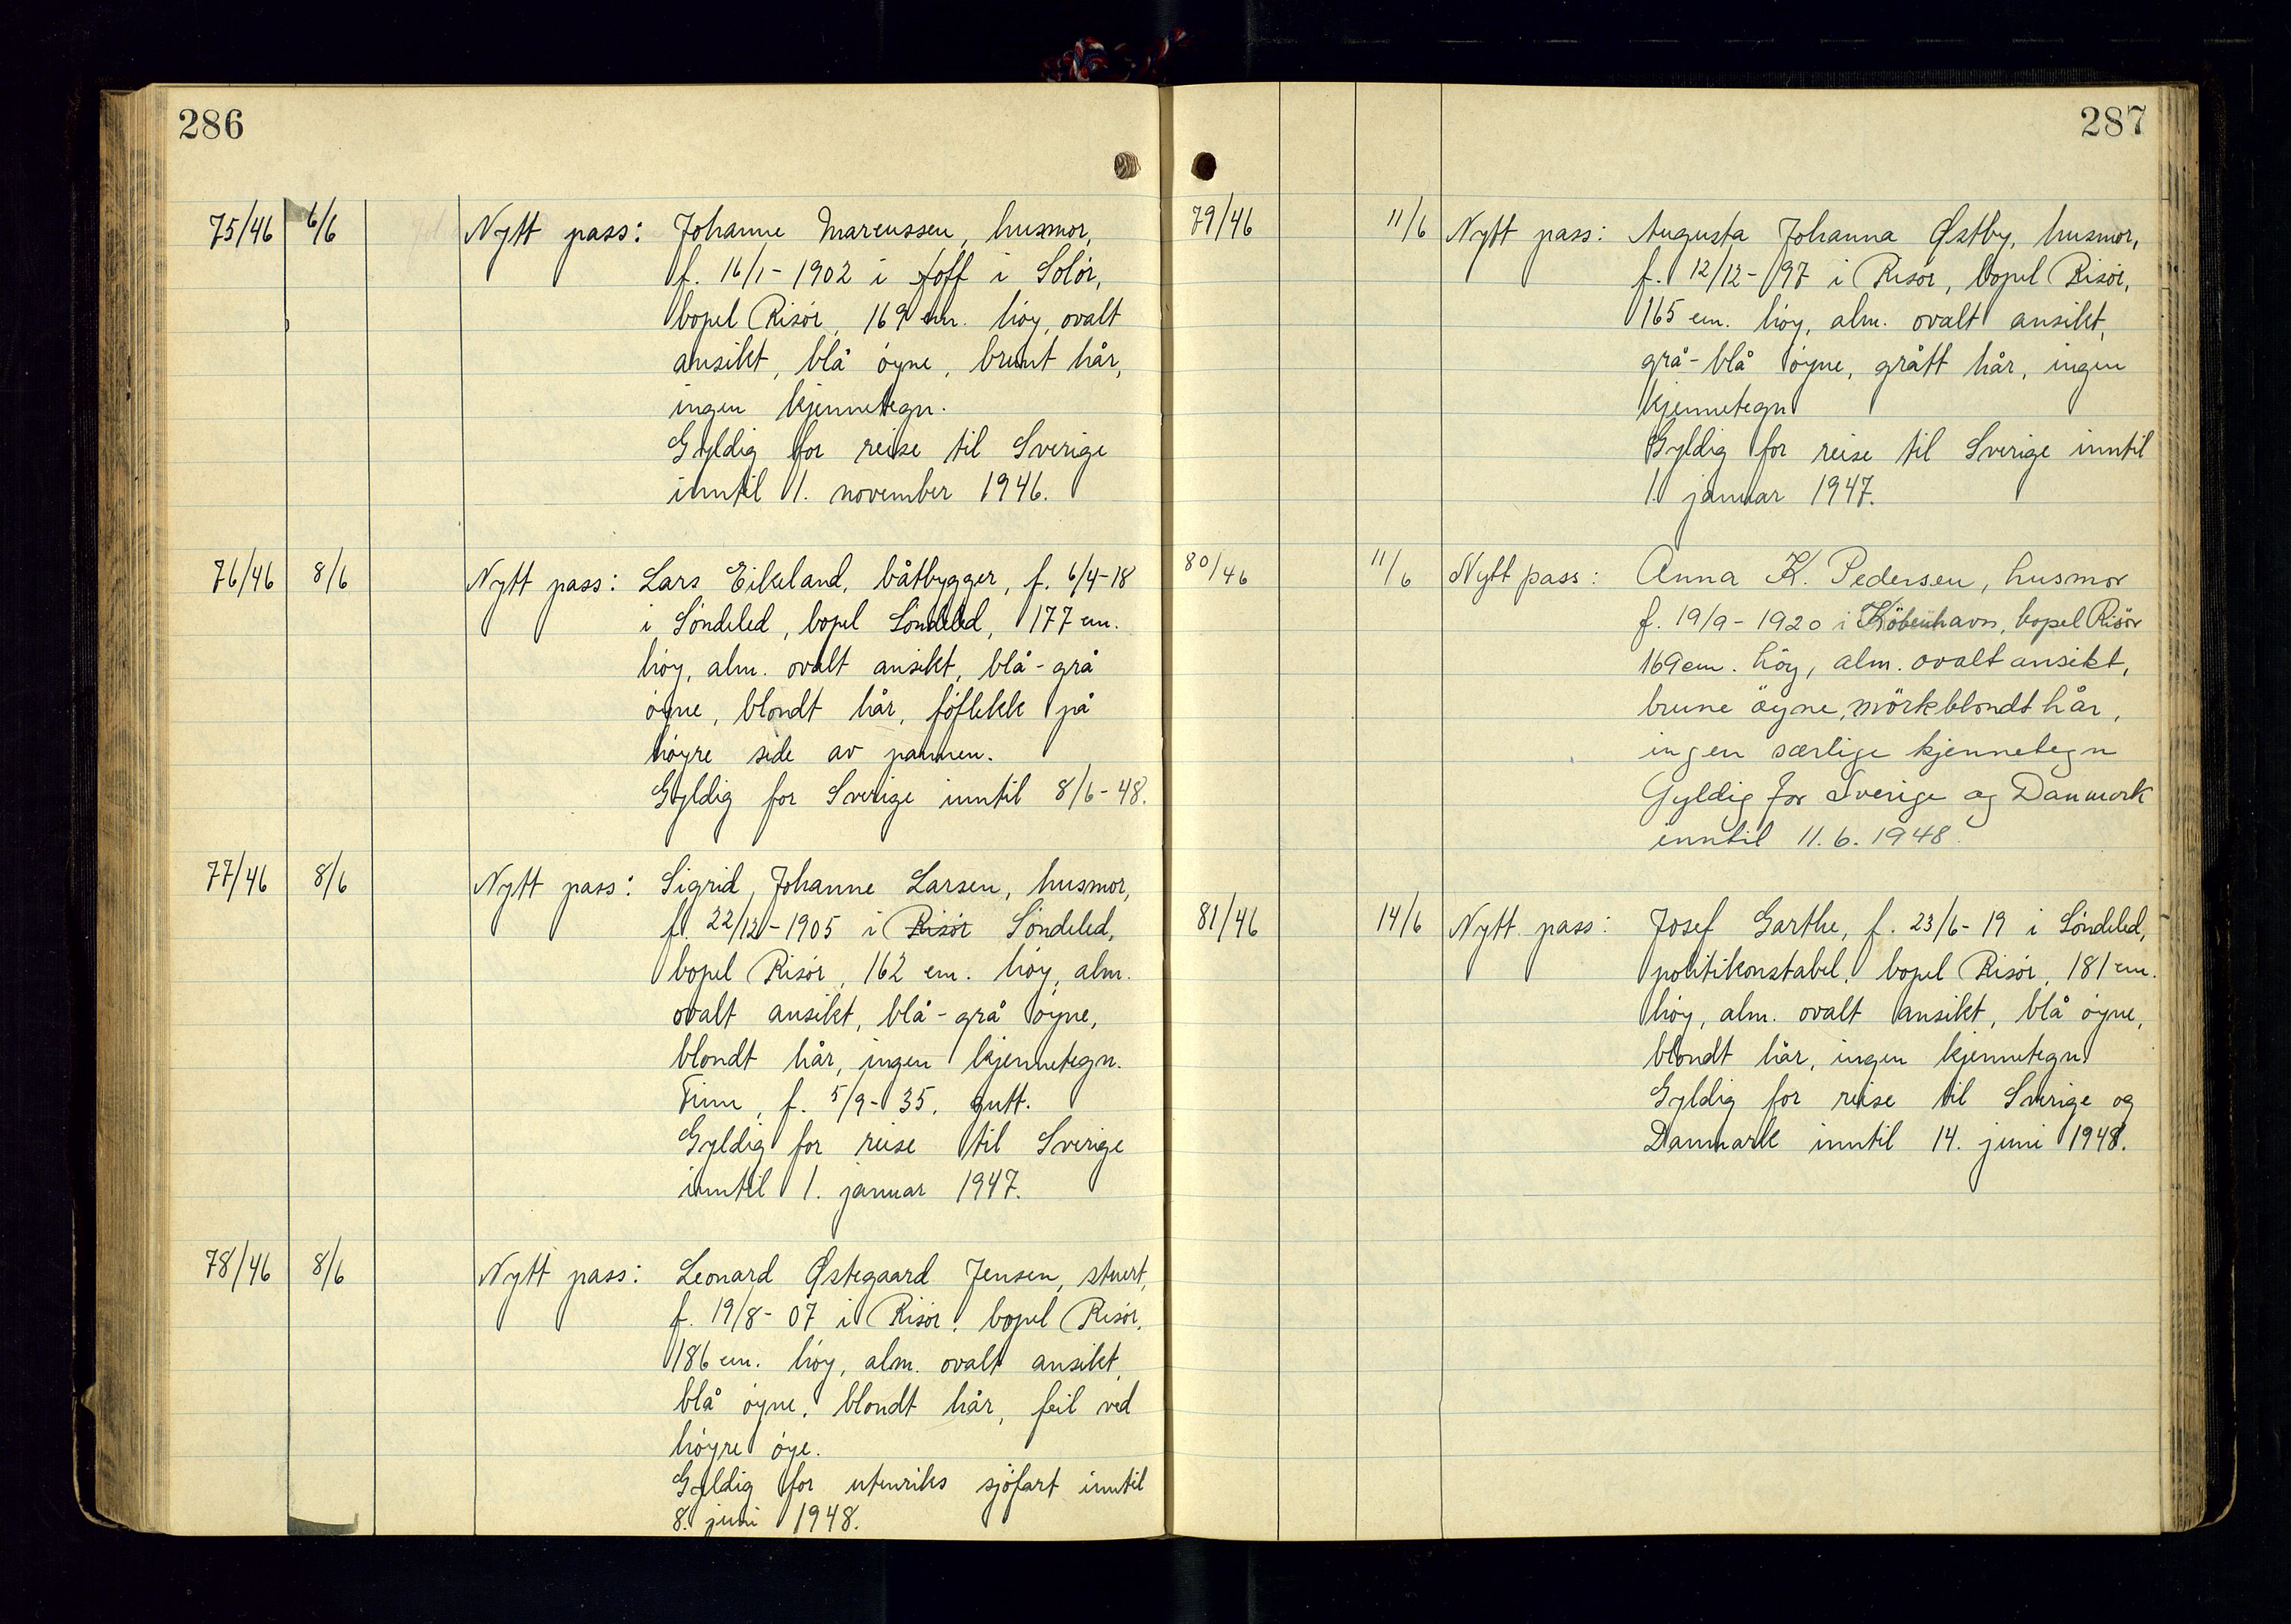 286
75/46 6/6 Nytt pass: Johanne Marcussen, husmor,
f. 16/1-1902 i Hoff i Solör,
bopel Risör, 169 cm. höy, ovalt
ansikt, blå öyne, brunt hår,
ingen kjennetegn.
Gyldig for reise til Sverige
inntil 1. november 1946.
76/46 8/6 Nytt pass: Lars Eikeland, båtbygger, f. 6/4-18
i Söndeled, bopel Söndeled, 177 cm.
höy, alm. ovalt ansikt, blå-grå
öyne, blondt hår, föflekk på
höyre side av pannen.
Gyldig for Sverige inntil 8/6-48.
77/46 8/6 Nytt pass: Sigrid Johanne Larsen, husmor,
f. 22/12-1905 i Risör Söndeled,
bopel Risör, 162 cm. höy, alm.
ovalt ansikt, blå-grå öyne,
blondt hår, ingen kjennetegn.
Finn, f. 5/9-35, gutt.
Gyldig for reise til Sverige
inntil 1. januar 1947.
78/46 8/6 Nytt pass: Leonard Østegaard Jensen, stuert,
f. 19/8-07 i Risör, bopel Risör,
186 cm. höy, alm. ovalt ansikt,
blå öyne, blondt hår, feil ved
höyre öye.
Gyldig for utenriks sjöfart inntil
8. juni 1948.
287
79/46 11/6 Nytt pass: Augusta Johanna Østby, husmor,
f. 12/12-97 i Risör, bopel Risör,
165 cm. höy, alm. ovalt ansikt,
grå-blå öyne, grått hår, ingen
kjennetegn
Gyldig for reise til Sverige inntil
1. januar 1947.
80/46 11/6 Nytt pass: Anna K. Pedersen, husmor
f. 19/9-1920 i Köbenhavn, bopel Risör
169 cm. höy, alm. ovalt ansikt,
brune öyne, mörkblondt hår,
ingen særlige kjennetegn
Gyldig for Sverige og Danmark
inntil 11.6.1948.
81/46 14/6 Nytt pass: Josef Garthe, f. 23/6-19 i Söndeled,
politikonstabel, bopel Risör, 181 cm.
höy, alm. ovalt ansikt, blå öyne,
blondt hår, ingen kjennetegn
Gyldig for reise til Sverige og
Danmark inntil 14. juni 1948.